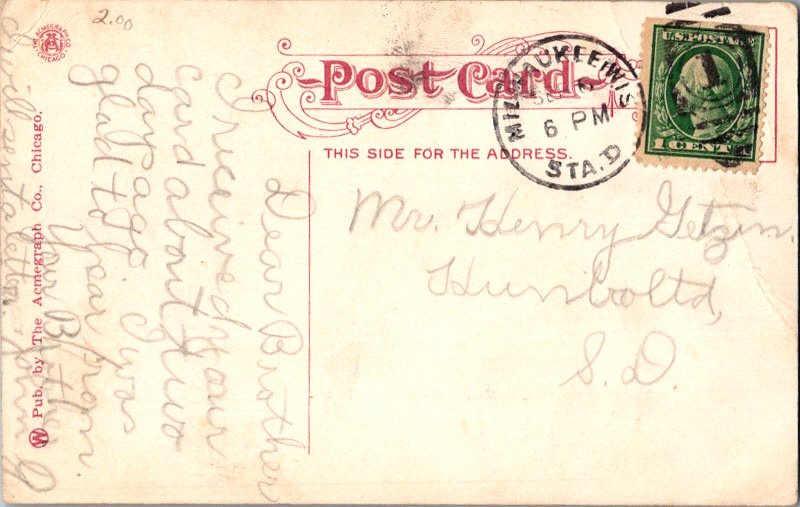 2.00
THE ACMEGRAPH CO.
CHICAGO
Post Card
THIS SIDE FOR THE ADDRESS.
MILWAUKEE, WIS.
6
6 PM
STA. D
U.S. POSTAGE
1
1 CENT
Mr. Henry Getzin.
Humboltd,
S. D.
Dear Brother
I received your
card about two
days ago I was
glad to hear from
Your Brother
I will sent a letter.
John G
Pub. by The Acmegraph Co., Chicago.
W